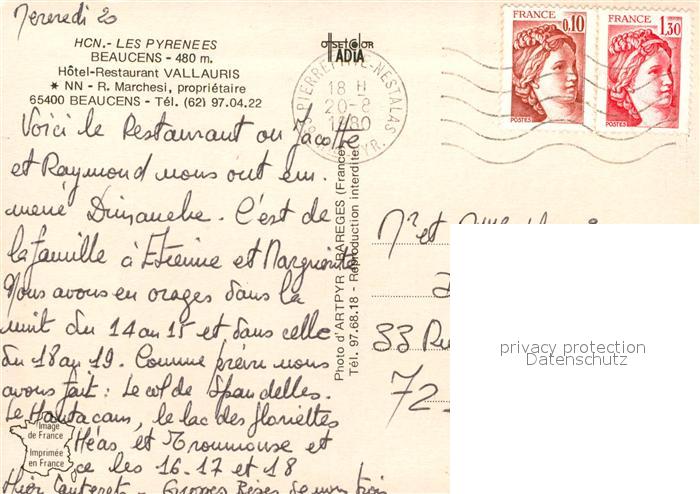 Mercredi 20
HCN.- LES PYRENEES
BEAUCENS - 480 m.
Hôtel-Restaurant VALLAURIS
* NN - R. Marchesi, propriétaire
65400 BEAUCENS - Tél. (62) 97.04.22
Voici le Restaurant ou Jacotte
et Raymond nous ont em
mené Dimanche. C'est de
la famille à Etienne et Marguerite
Nous avons eu orages dans la
nuit du 14 au 15 et dans celle
du 18 au 19. Comme prévu nous
avons fait : Le col de Spandelles.
Le Hautacam, le lac des gloriettes
Héas et Troumouse et
ce les 16-17 et 18
Hier Cauterets - Grosses Bises de nous trois
Image
de France
Imprimée
en France
OFFSET COLOR
ADIA
PIERREFITTE-NESTALAS
18 H
20-8
1980
PYR.
Photo d'ARTPYR ARAREGES (France)
Tél. 97.68.18 - Reproduction interdite
FRANCE
0,10
POSTES
FRANCE
1,30
POSTES
Mr et Mme
33 Ru
72
privacy protection
Datenschutz